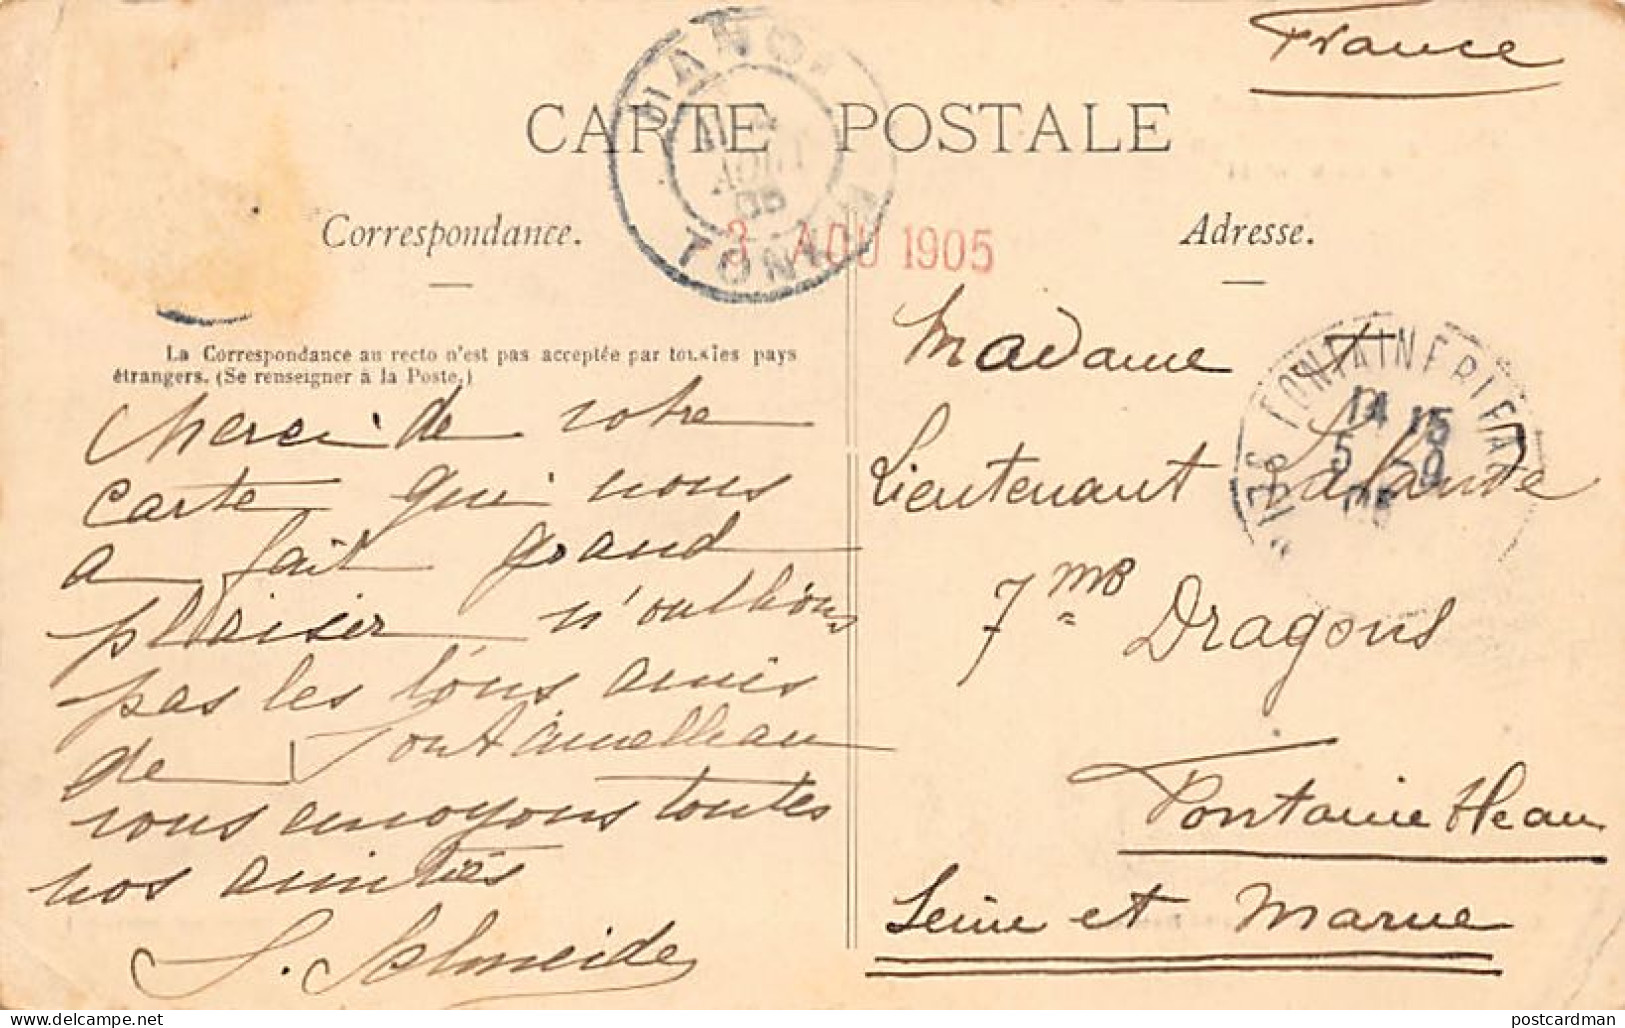 France
CARTE POSTALE
HANOI
AOUT
05
TONKIN
3 AOU 1905
Correspondance.
Adresse.
La Correspondance au recto n'est pas acceptée par tous les pays
étrangers. (Se renseigner à la Poste.)
Merci de votre
carte qui nous
a fait grand
plaisir n'oublions
pas les bons amis
de Fontainebleau
vous envoyons toutes
nos amitiés
S. Schneider
FONTAINEBLEAU
14 15
5 -9
05
Madame
Lieutenant
7me Dragons
Fontainebleau
Seine et Marne
postcardman